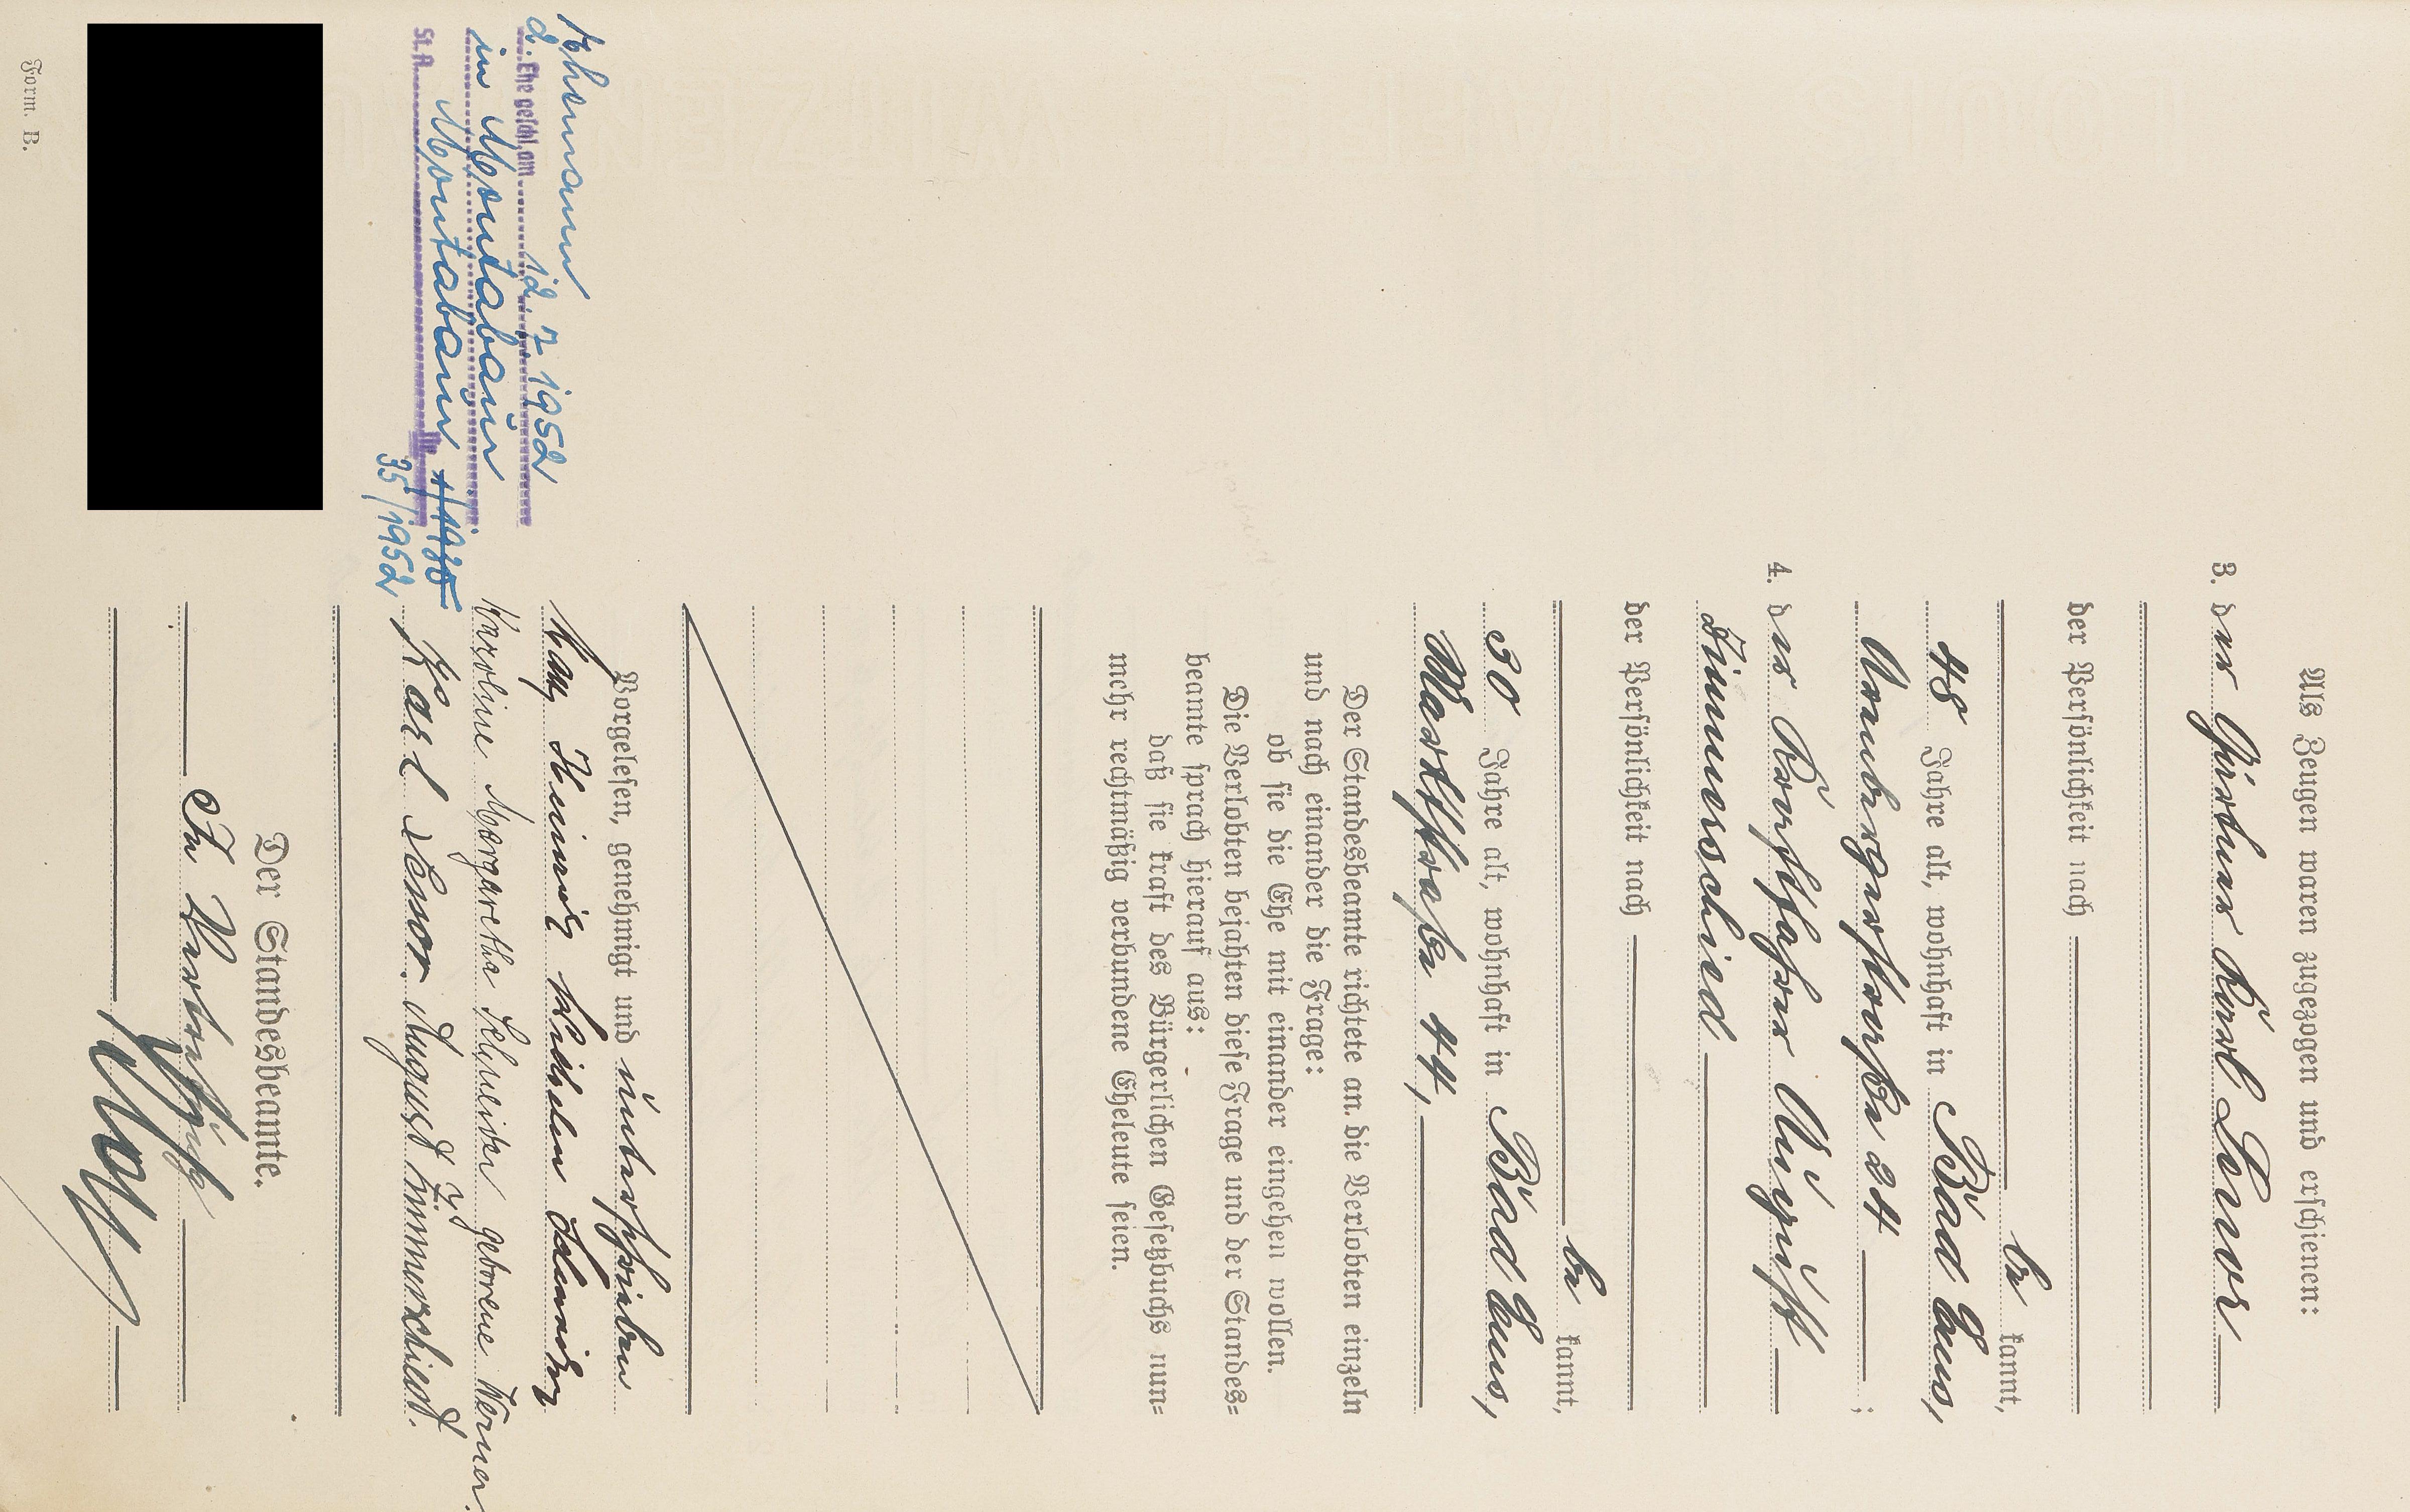 Als Zeugen waren zugezogen und erschienen:
3. der Gärtner Karl Senor
der Persönlichkeit nach
be kannt,
48 Jahre alt, wohnhaft in Bad Ems,
Arenbergerstraße 24 ;
4. der August
Zimmerschied
der Persönlichkeit nach
be kannt,
30 Jahre alt, wohnhaft in Bad Ems,
44,
Der Standesbeamte richtete an die Verlobten einzeln
und nach einander die Frage:
ob sie die Ehe mit einander eingehen wollen.
Die Verlobten bejahten diese Frage und der Standes=
beamte sprach hierauf aus:
daß sie kraft des Bürgerlichen Gesetzbuchs nun=
mehr rechtmäßig verbundene Eheleute seien.
Vorgelesen, genehmigt und unterschrieben
Max Heinrich Wilhelm
Karoline Margaretha geborene Werner.
Karl Senor. August Zimmerschied.
Der Standesbeamte.
In Vertretung
Ehemann
2. Ehe geschl. am 12. 7. 1952
in Montabaur
St. A. Montabaur Nr.
35/1952
Form. B.